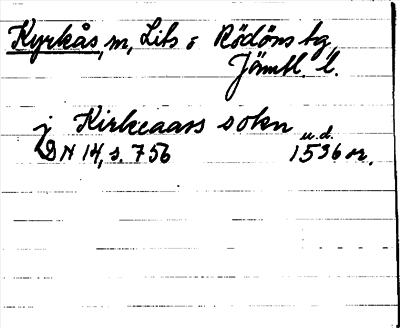 Kyrkås, sn, Lits o Rödöns tg
Jämtl. l.
j Kirkeaars sokn
u.d.
DN 14, s. 756 1536 or.